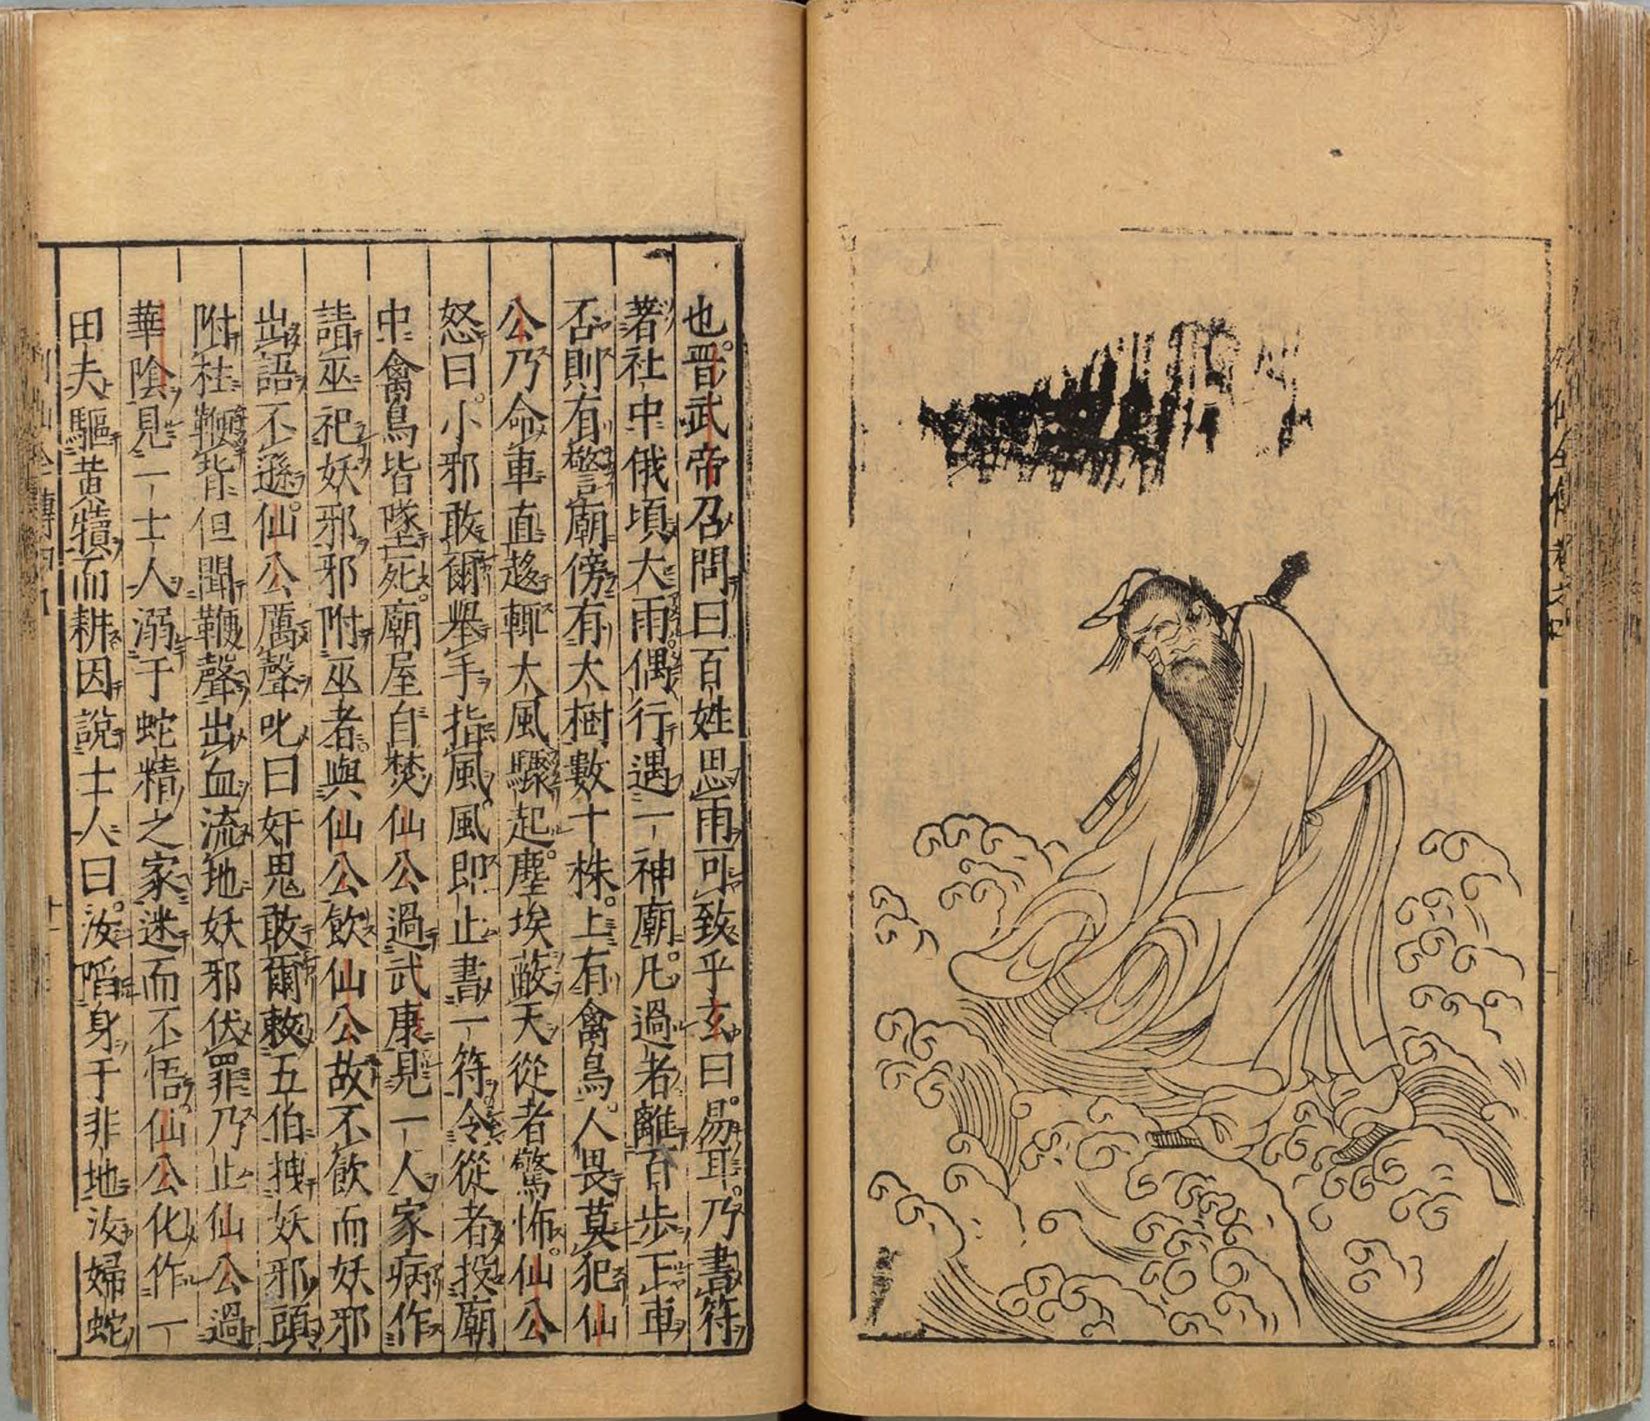 仙全傳卷之四
也。晋武帝召問曰百姓思雨可致乎玄曰。易耳。乃書符
著社中俄頃大雨。偶行遇一神廟。凡過者離百步下車
否則有警廟傍有大樹數十株。上有禽鳥。人畏莫犯仙
公乃命車直趍輒大風驟起。塵埃蔽天從者驚怖。仙公
怒曰。小邪敢爾舉手指風。風即止書一符。令從者投廟
中禽鳥皆墜死。廟屋自焚仙公過武康見一人家病作
請巫祀妖邪邪附巫者。與仙公飲仙公故不飲而妖邪
出語不遜。仙公厲聲叱曰奸鬼敢爾敕五伯拽妖邪頭
附柱鞭背但聞鞭聲出血流地妖邪伏罪乃止仙公過
華陰見一士人溺于蛇精之家迷而不悟。仙公化作一
田夫驅黄犢而耕因說士人曰。汝陷身于非地汝婦蛇
仙全傳四
十一